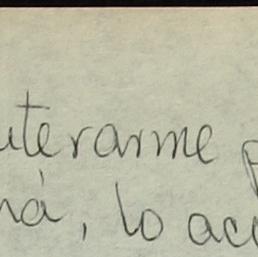 uterarme
ná, lo acc